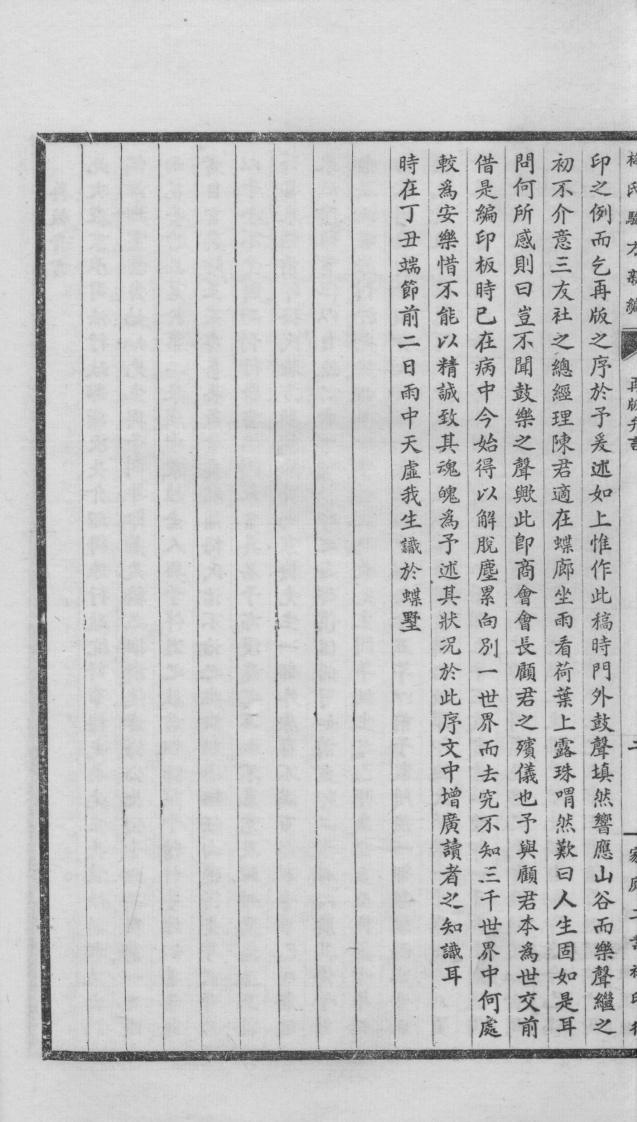 梅氏驗方新編 再版弁言 二 家庭工
印之例而乞再版之序於予爰述如上惟作此稿時門外鼓聲填然響應山谷而樂聲繼之
初不介意三友社之總經理陳君適在蝶廊坐雨看荷葉上露珠喟然歎曰人生固如是耳
問何所感則曰豈不聞鼓樂之聲歟此卽商會會長顧君之殯儀也予與顧君本為世交前
借是編印板時已在病中今始得以解脫塵累向別一世界而去究不知三千世界中何處
較為安樂惜不能以精誠致其魂魄為予述其狀况於此序文中增廣讀者之知識耳
時在丁丑端節前二日雨中天虛我生識於蝶墅